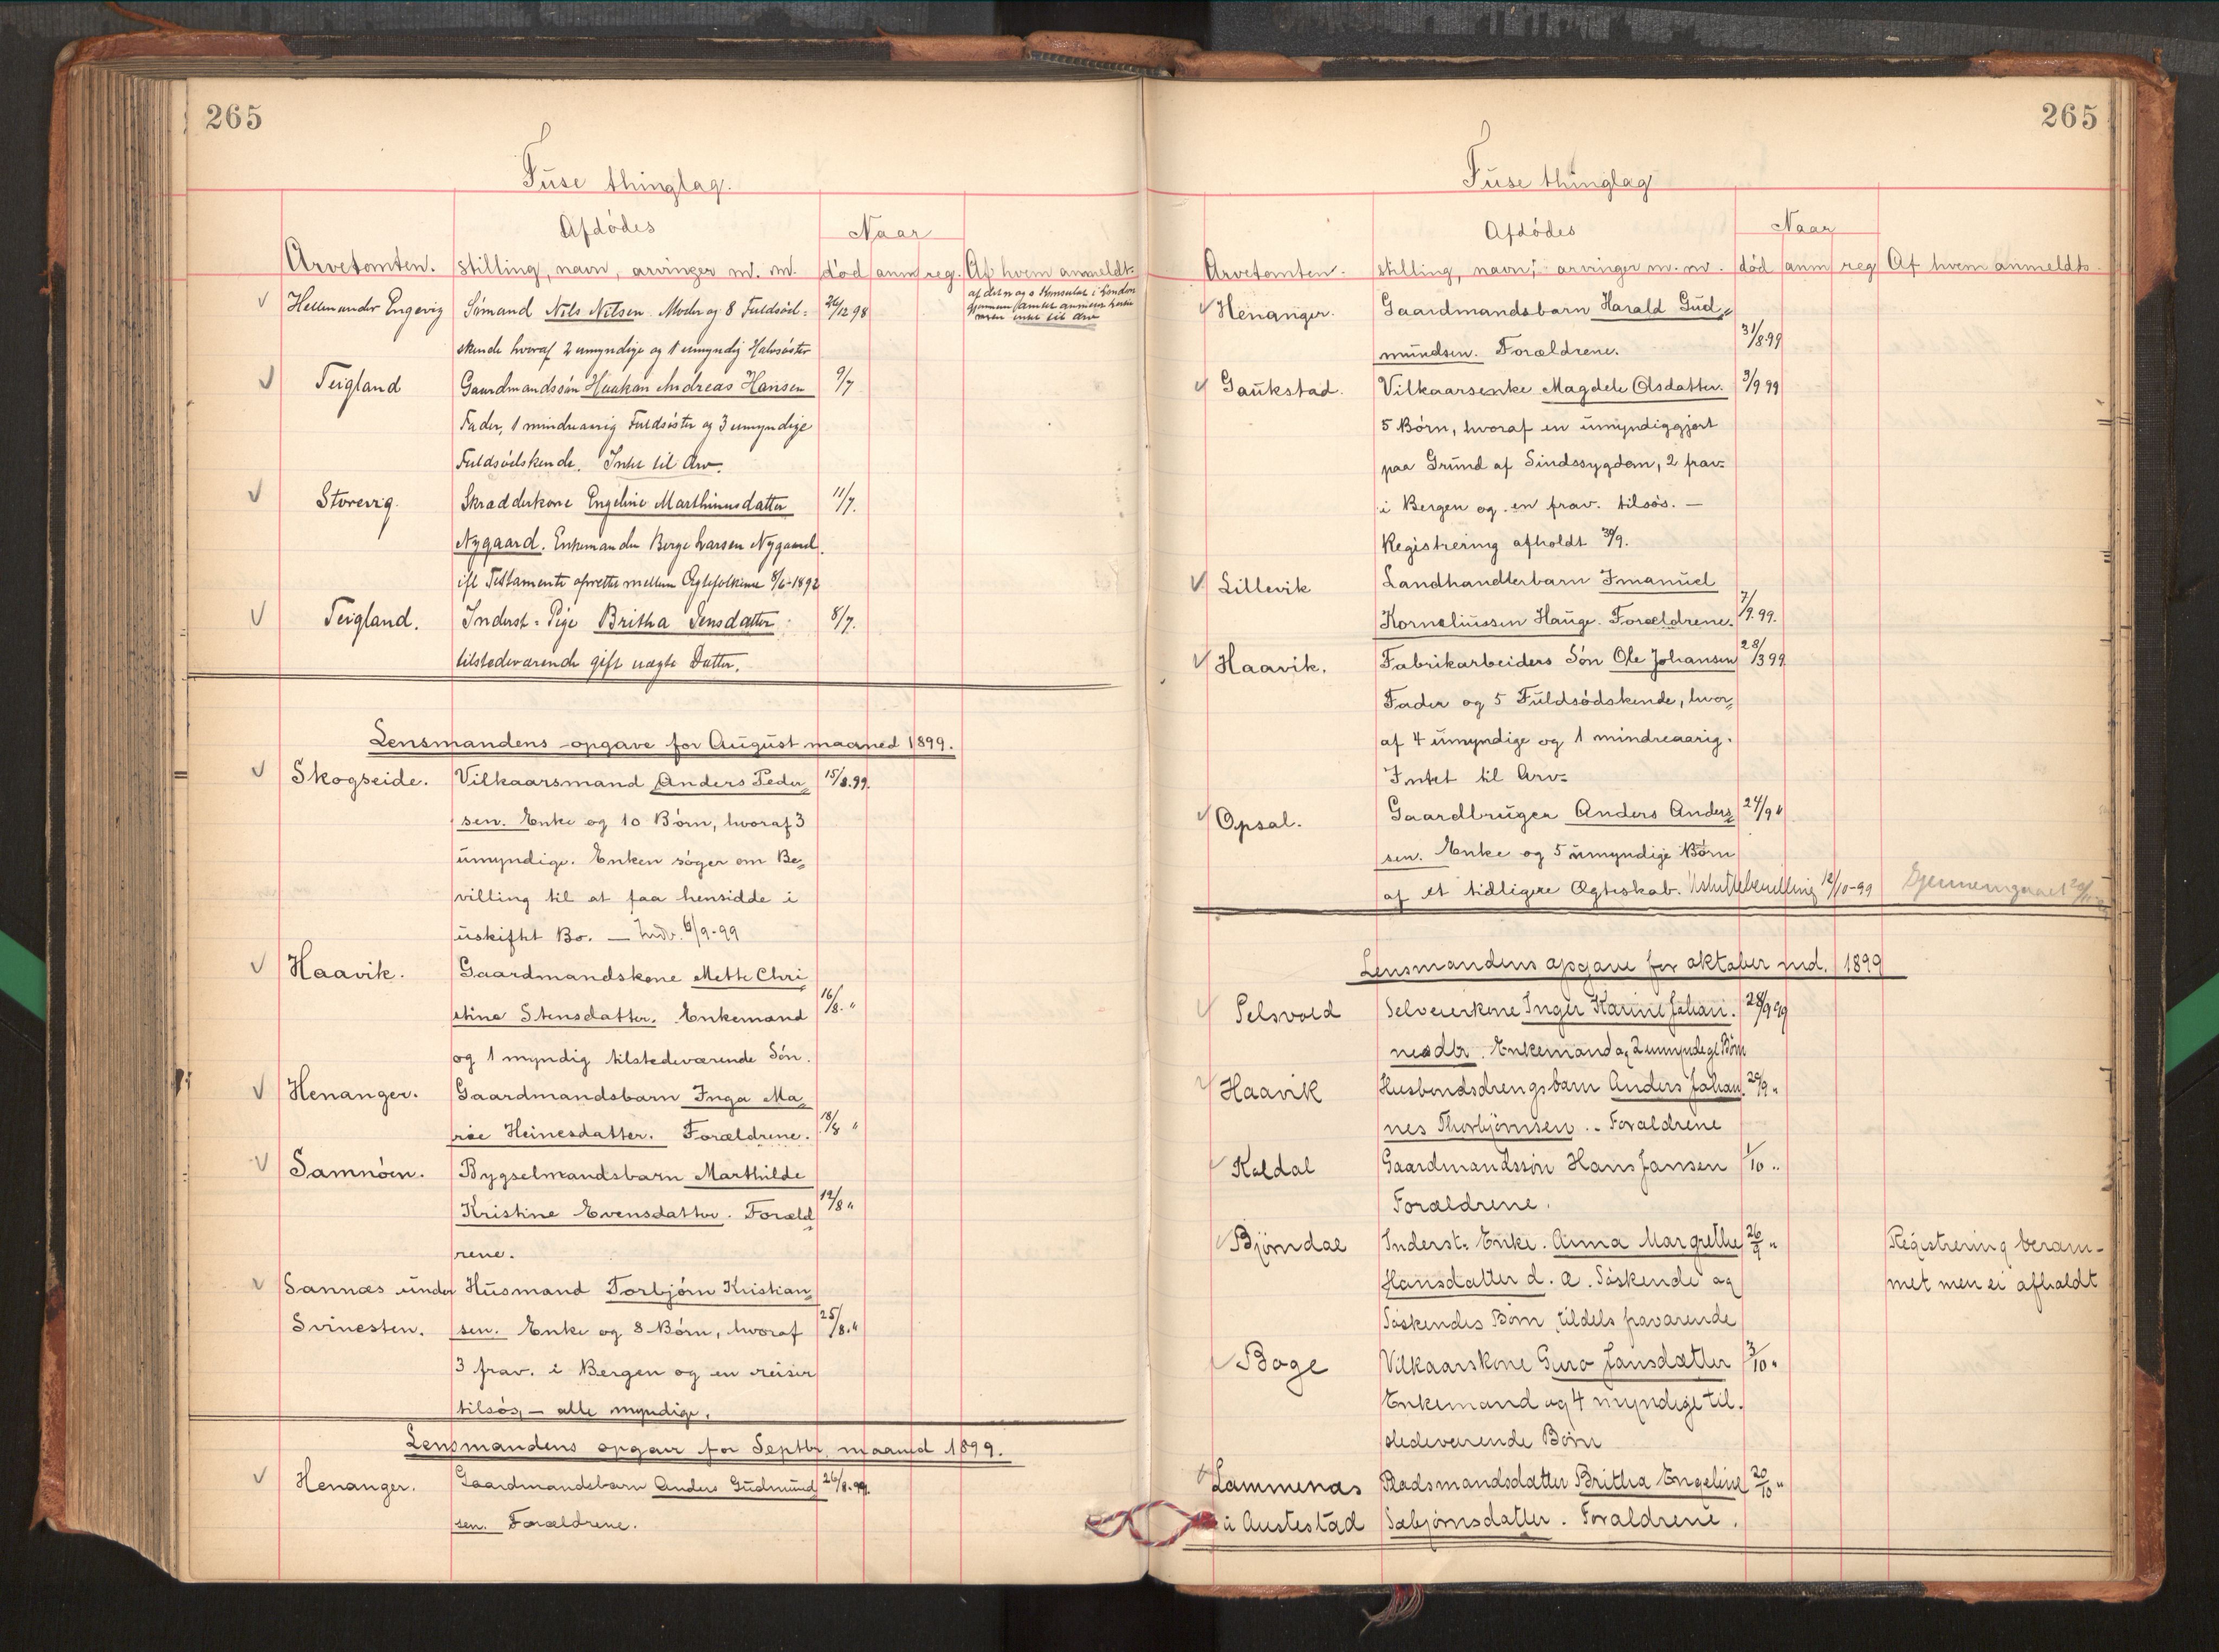 265
Fuse thinglag.
Afdödes
Naar
Arvetomten. stilling, navn, arvinger m. m. död anm reg. Af hvem anmeldt.
Engevig Sömand Nils Nilsen Moder og 8 Fuldsöd- 26/12 98
af det n og s Konsulat i London
gjennem Amtet anmeldt
men intet til Arv
skende hvoraf 2 umyndige og 1 umyndig Halvsöster
Teigland Gaardmandssön Haakon Andreas Hansen 9/7
Fader, 1 mindreaarig Fuldsöster og 3 umyndige
Fuldsödskende. Intet til Arv.
Storevig. Skrædderkone Engeline Marthinusdatter 11/7.
Nygaard. Enkemanden Berge Larsen Nygaard.
ifl Testamente oprettet mellem Ægtefolkene 8/6-1892
Teigland. Inderst-Pige Britha Jensdatter 8/7.
tilstedeværende gift uægte Datter.
Lensmandens opgave for August maaned 1899.
Skogseide. Vilkaarsmand Anders Peder= 15/8.99.
sen. Enke og 10 Börn, hvoraf 3
umyndige. Enken söger om Be=
villing til at faa hensidde i
uskiftet Bo. — Indv. 6/9-99
Haavik. Gaardmandskone Mette Chri=
stine Stensdatter. Enkemand 16/8. "
og 1 myndig tilstedeværende Sön.
Henanger. Gaardmandsbarn Inga Ma=
rie Heinesdatter. Forældrene. 18/8 "
Samnöen. Bygselmandsbarn Marthilde
Kristine Evensdatter. Foræld= 12/8 "
rene.
Sannæs under Husmand Torbjörn Kristian=
Svinesten. sen. Enke og 8 Börn, hvoraf 25/8. "
3 frav. i Bergen og en reiser
tilsös, — alle myndige.
Lensmandens opgave for Septbr. maaned 1899.
Henanger. Gaardmandsbarn Anders Gudmund 26/8.99.
sen. Forældrene.
265
Fuse thinglag
Afdödes
Naar
Arvetomten. stilling, navn, arvinger m. m. död anm reg Af hvem anmeldts.
Henanger. Gaardmandsbarn Harald Gud=
mundsen. Forældrene. 31/8.99
Gaukstad. Vilkaarsenke Magdele Olsdatter. 3/9 99
5 Börn, hvoraf en umyndiggjort
paa Grund af Sindssygdom, 2 frav.
i Bergen og en frav. tilsös. —
Registrering afholdt 30/9.
Lillevik Landhandlerbarn Imanuel
Korneliussen Hauge. Forældrene. 7/9.99.
Haavik. Fabrikarbeiders Sön Ole Johansen 28/3 99
Fader og 5 Fuldsödskende, hvor=
af 4 umyndige og 1 mindreaarig.
Intet til Arv.
Opsal. Gaardbruger Anders Anders= 24/9 "
sen. Enke og 5 umyndige Börn
af et tidligere Ægteskab. Uskiftebevilling 12/10-99 Gjennemgaaet
Lensmandens opgave for oktober md. 1899
Selsvold Selveierkone Inger Karine Johan. 28/9 99
nesdtr. Enkemand og 2 umyndige Börn
Haavik Husbondsdrengsbarn Anders Johan. 29/9 "
nes Thorbjørnsen. - Forældrene
Kaldal Gaardmandssön Hans Jansen 1/10 "
Forældrene.
Bjørndal Inderst- Enke. Anna Margrethe 26/9 "
Registrering beram-
Hansdatter d. æ. Söskende og
met men ei afholdt
Söskendes Börn tildels fraværende
Boge Vilkaarskone Guro Jansdatter 3/10 "
Enkemand og 4 myndige til.
stedeværende Börn
Lammenæs Pladsmandsdatter Britha Engeline 20/10 "
u Austestad Sæbjørnsdatter. Forældrene.